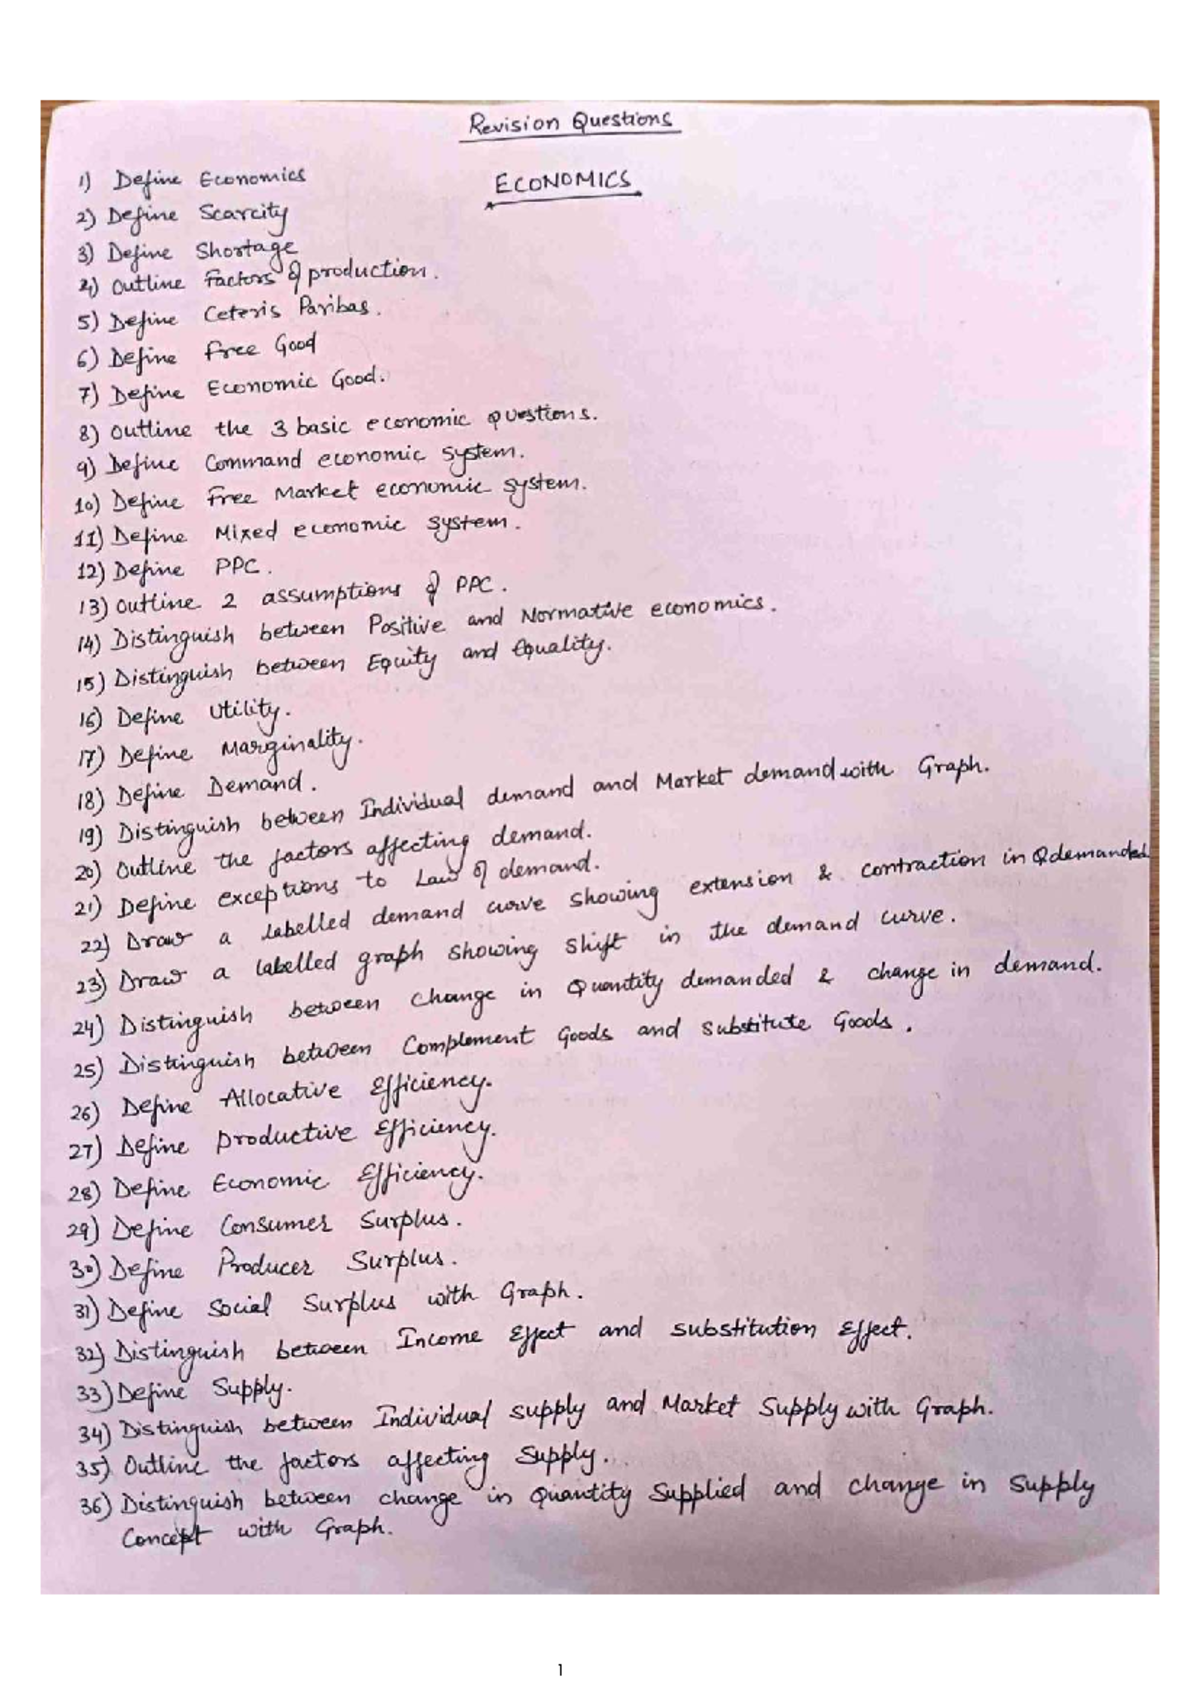 Revision Questions
ECONOMICS
1) Define Economics
2) Define Scarcity
3) Define Shortage
4) Outline Factors of production.
5) Define Ceteris Paribas.
6) Define Free Good
7) Define Economic Good.
8) Outline the 3 basic economic questions.
9) Define Command economic system.
10) Define Free Market economic system.
11) Define Mixed economic system.
12) Define PPC.
13) Outline 2 assumptions of PPC.
14) Distinguish between Positive and Normative economics.
15) Distinguish between Equity and Equality.
16) Define Utility.
17) Define Marginality.
18) Define Demand.
19) Distinguish between Individual demand and Market demand with Graph.
20) Outline the factors affecting demand.
21) Define exceptions to Law of demand.
22) Draw a labelled demand curve showing extension & contraction in Qdemanded
23) Draw a labelled graph showing shift in the demand curve.
24) Distinguish between change in Quantity demanded & change in demand.
25) Distinguish between Complement Goods and Substitute Goods.
26) Define Allocative Efficiency.
27) Define productive Efficiency.
28) Define Economic Efficiency.
29) Define Consumer Surplus.
30) Define Producer Surplus.
31) Define Social Surplus with Graph.
32) Distinguish between Income Effect and substitution Effect.
33) Define Supply.
34) Distinguish between Individual supply and Market Supply with Graph.
35) Outline the factors affecting Supply.
36) Distinguish between change in Quantity Supplied and change in Supply
Concept with Graph.
1